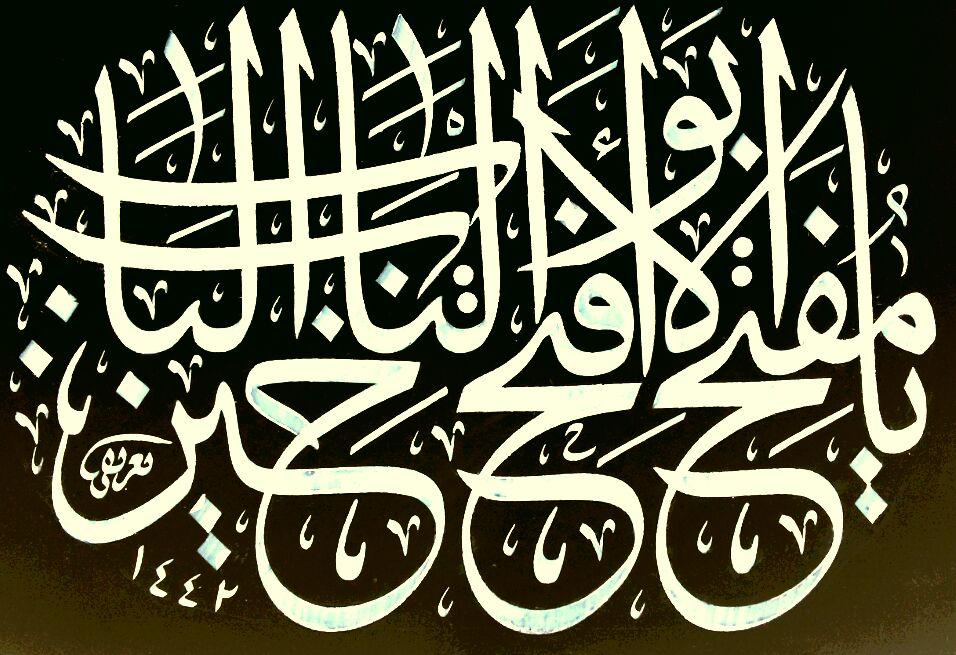 يا مفتح الأبواب افتح لنا الباب
١٤٤٢